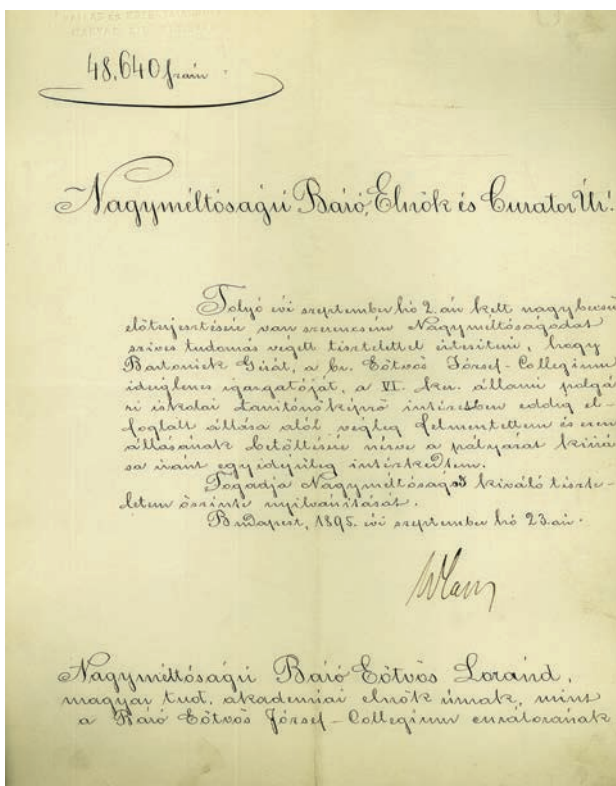 48.640 szám
Nagyméltóságú Báró, Elnök és Curator Úr!
Folyó évi szeptember hó 2.-án kelt nagybecsű
előterjesztésére van szerencsém Nagyméltóságodat
szives tudomás végett tisztelettel értesíteni, hogy
Bartoniek Gézát, a br. Eötvös József-Collegium
ideiglenes igazgatóját, a VI. ker. állami polgá-
ri iskolai tanítónőképző intézetben eddig el-
foglalt állása alól végleg felmentettem és ezen
állásának betöltésére nézve a pályázat kiirá-
sa iránt egyidejüleg intézkedtem.
Fogadja Nagyméltóságod kiváló tiszte-
letem őszinte nyilvánítását.
Budapest, 1895. évi szeptember hó 23.-án.
Nagyméltóságú Báró Eötvös Loránd,
magyar tud. akademiai elnök úrnak, mint
a Báró Eötvös József-Collegium curátorának